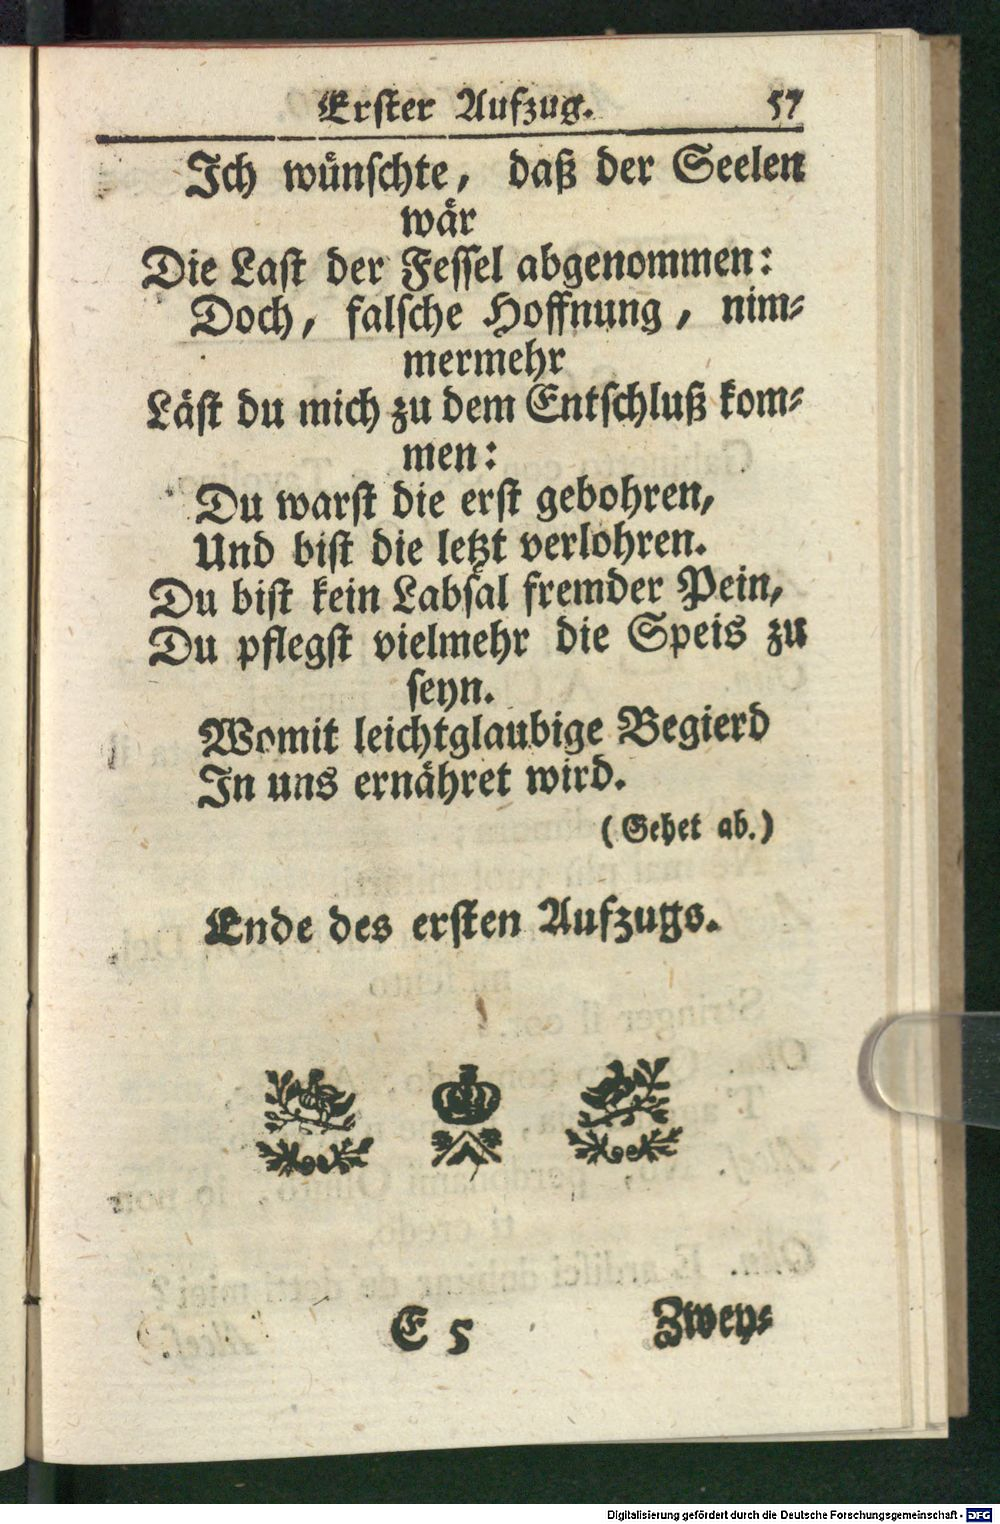 Erster Aufzug. 57
Ich wünschte, daß der Seelen
wär
Die Last der Fessel abgenommen:
Doch, falsche Hoffnung, nim-
mermehr
Läst du mich zu dem Entschluß kom-
men:
Du warst die erst gebohren,
Und bist die letzt verlohren.
Du bist kein Labsal fremder Pein,
Du pflegst vielmehr die Speis zu
seyn.
Womit leichtglaubige Begierd
In uns ernähret wird.
(Gehet ab.)
Ende des ersten Aufzugs.
E 5 Zwey-
Digitalisierung gefördert durch die Deutsche Forschungsgemeinschaft - DFG